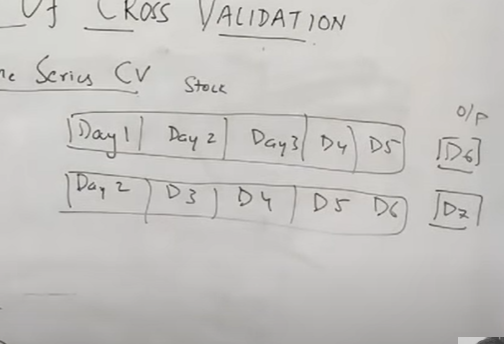 Of CROSS VALIDATION
Series CV Stock
O/P
Day 1 Day 2 Day 3 D4 D5 D6
Day 2 D3 D4 D5 D6 D7